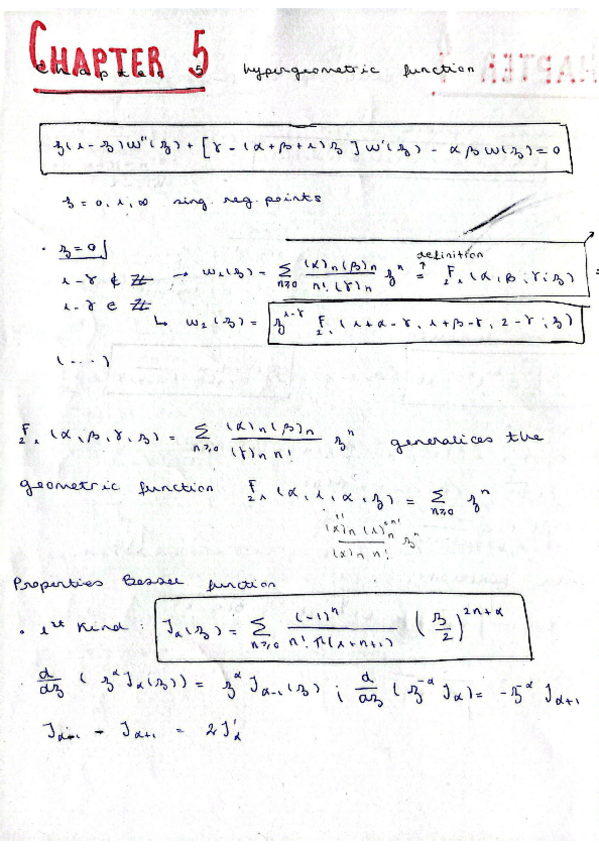 CHAPTER 5
Chapter 5 hypergeometric function
z(1-z)w''(z) + [γ - (α+β+1)z]w'(z) - αβw(z) = 0
z = 0, 1, ∞ sing. reg. points
· z=0
definition
1-γ ∉ ℤ → w₁(z) = Σ_{n≥0} (α)ₙ(β)ₙ / n!(γ)ₙ zⁿ = ₂F₁(α, β, γ; z) =
1-γ ∈ ℤ
↳ w₂(z) = z^{1-γ} ₂F₁(1+α-γ, 1+β-γ, 2-γ; z)
(...)
₂F₁(α, β, γ, z) = Σ_{n≥0} (α)ₙ(β)ₙ / (γ)ₙ n! zⁿ generalices the
geometric function ₂F₁(α, 1, α, z) = Σ_{n≥0} zⁿ
(α)ₙ (1)ₙ / (α)ₙ n! zⁿ
Properties Bessel function
· 1st Kind: J_α(z) = Σ_{n≥0} (-1)ⁿ / n! Γ(1+n+1) (z/2)^{2n+α}
d/dz (z^α J_α(z)) = z^α J_{α-1}(z) ; d/dz (z^{-α} J_α) = -z^{-α} J_{α+1}
J_{α-1} - J_{α+1} = 2J'_α